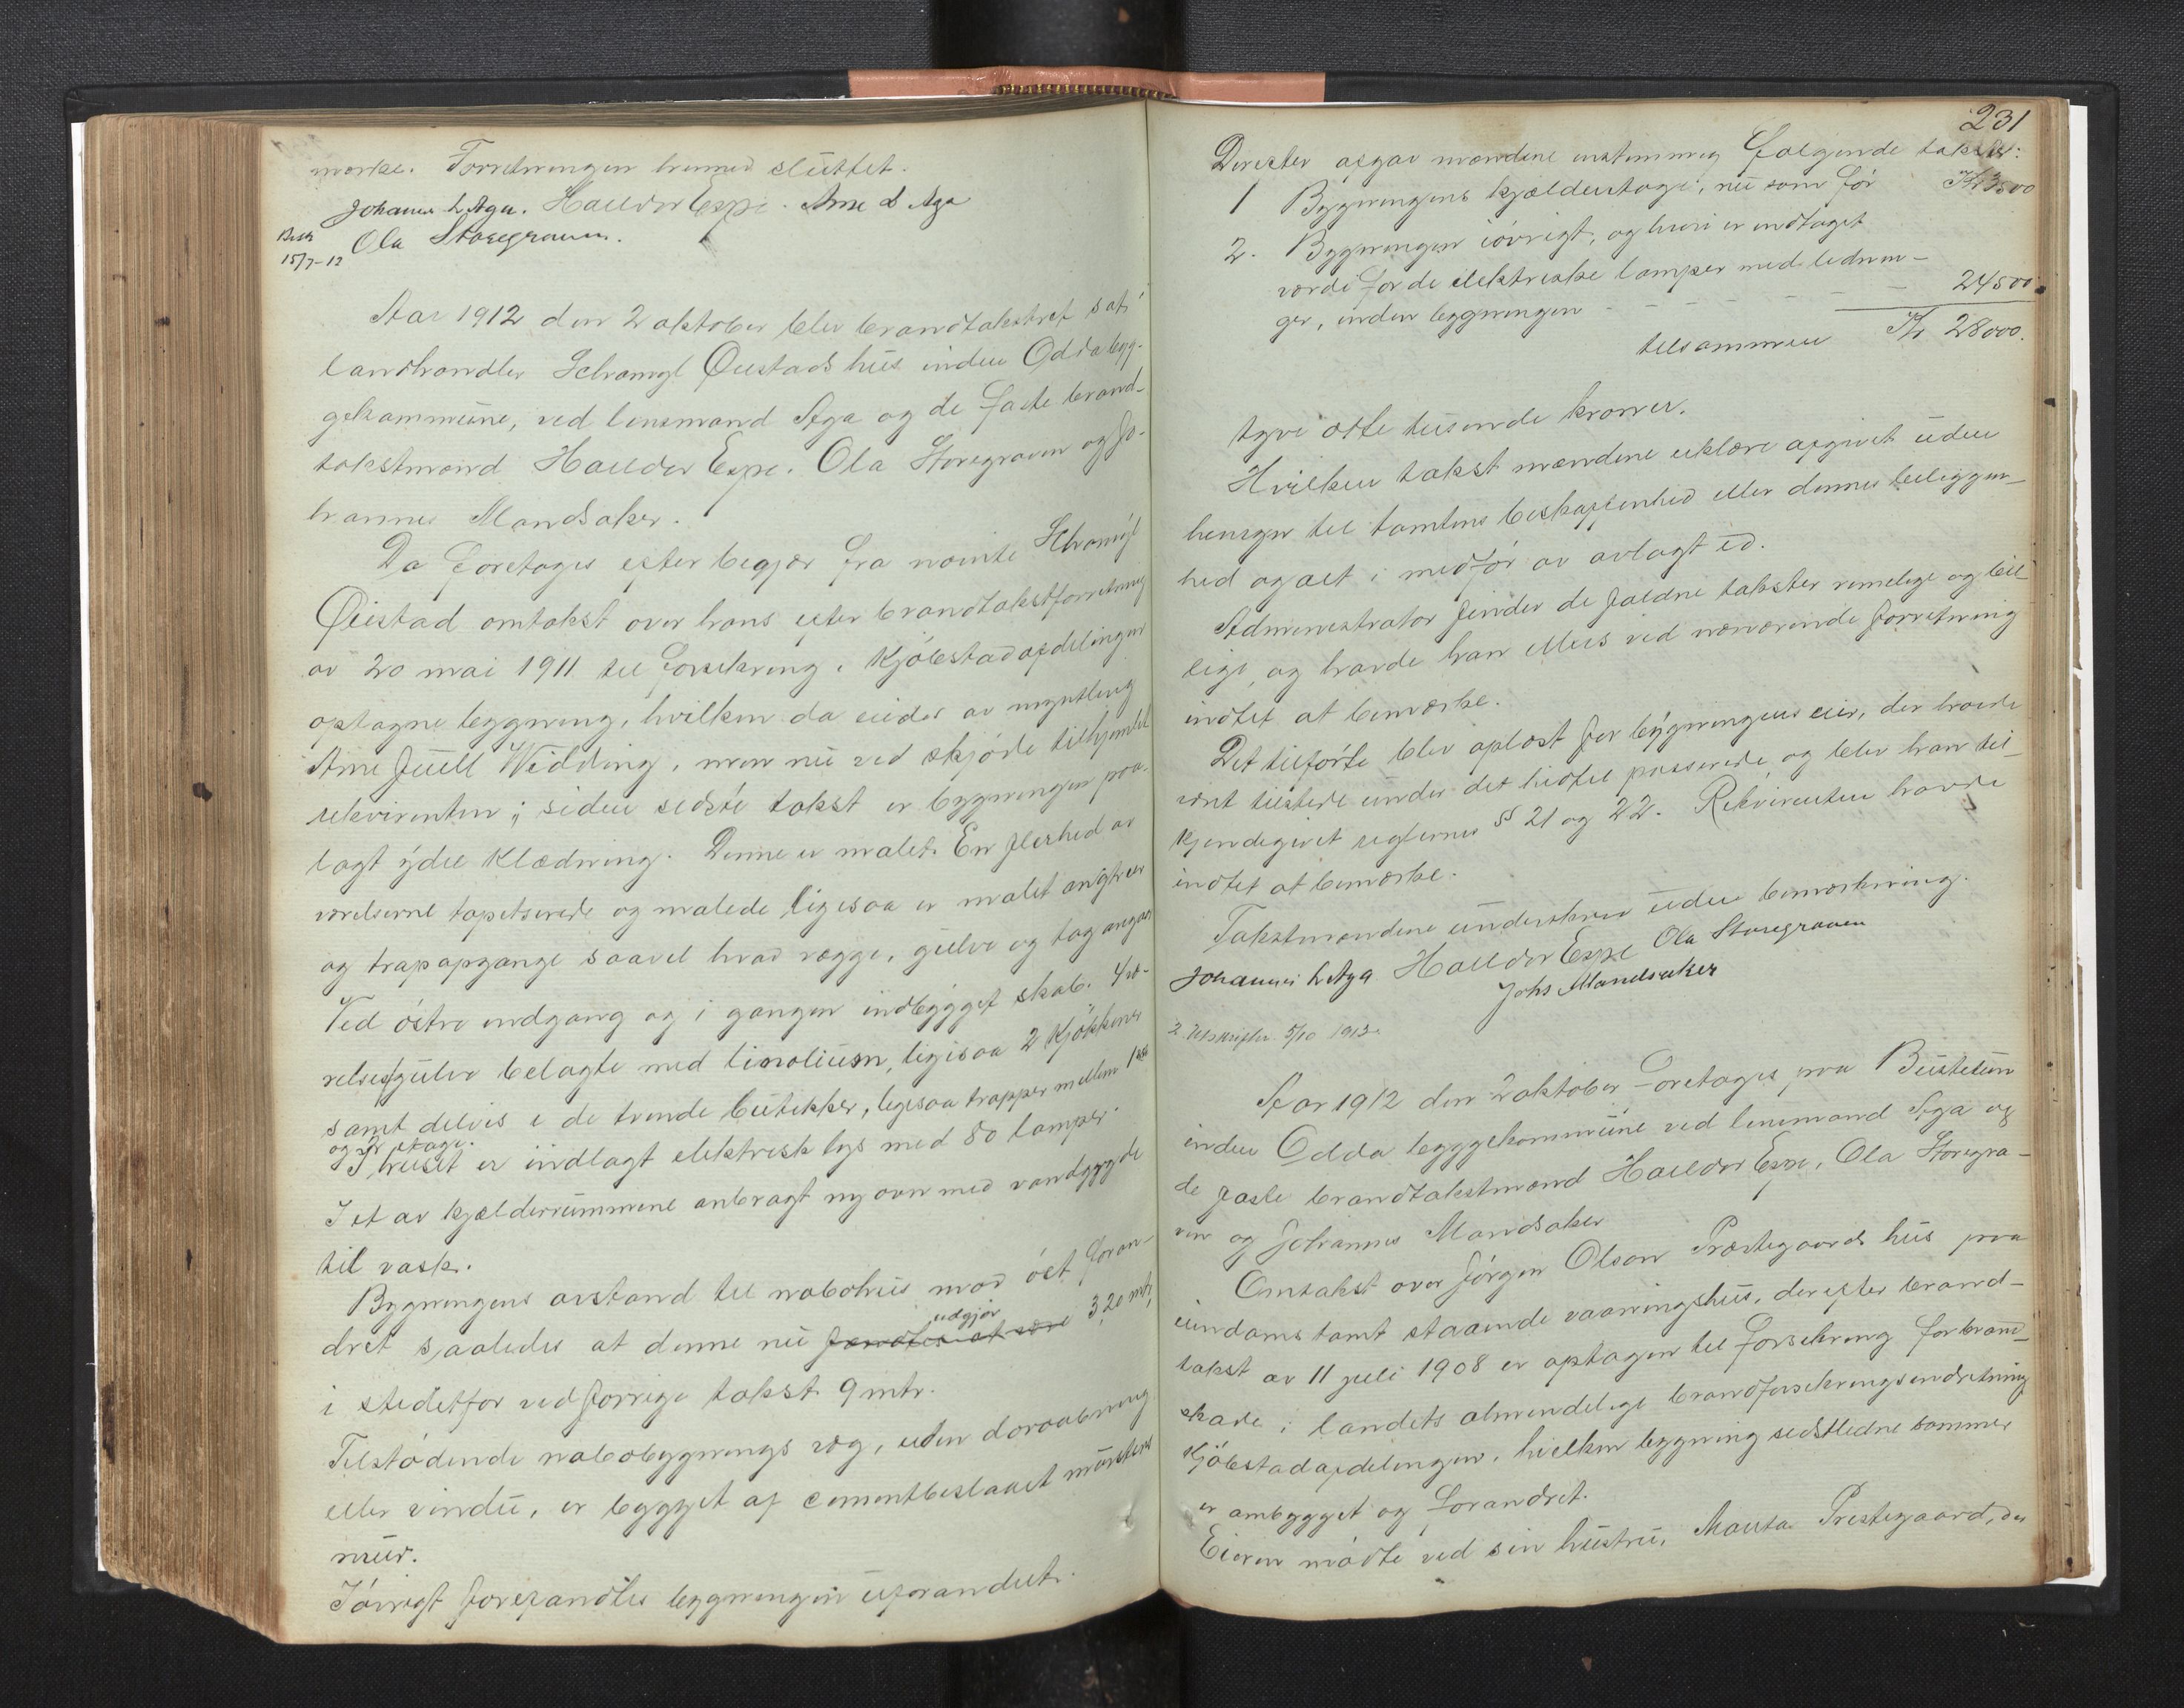 merke. Forretningen hermed sluttet.
Johannes L Aga. Halldor Espe. Arne L Aga
Besk
15/7-12
Ola Storegraven.
Aar 1912 den 2 oktober blev brandtakstret sat i
landhandler Schanyl Øustads hus inden Odda byg-
gekommune, ved lensmand Aga og de faste brand-
takstmænd Halldor Espe. Ola Storegraven og Jo-
hannes Mandsaker.
Da foretoges efter begjær fra nævnte Schanyl
Øistad omtakst over hans efter brandtakstforretning
av 20 mai 1911 til forsikring i Kjøbstadafdelingen
optagne bygning, hvilken da eiedes av myntling
Arne Juell Widding, men nu ved skjøde tilhjemlet
rekvirenten; siden sidste takst er bygningen paa-
lagt ydre klædning. Denne er malet. En flerhed av
værelserne tapetserede og malede ligesaa er malet
og trapopgange saavel hvad vægge, gulve og tag angaar
Ved østre indgang og i gangen indbygget skab. 4 væ-
relsesgulve belagte med linolium, ligesaa 2 kjøkkener
samt delvis i de tvende butikker, ligesaa trapper mellem 1ste
og 2r etage.
I huset er indlagt elektrisk lys med 80 lamper.
I et av kjælderrummene anbragt ny ovn med vandgryde
til vask.
Bygningens avstand til nabohus mod øst foran-
udgjør
dret saaledes at denne nu fandtes at være 3,20 mtr,
i stedetfor ved forrige takst 9 mtr.
Tilstødende nabobygnings væg, uden døraabning
eller vindu, er bygget af cementbeslaaet mursten
mur.
Iøvrigt forefandtes bygningen uforandret.
231
Derefter afgav mændene enstemmig følgende takster:
1 Bygningens kjælderetage, nu som før Kr 3500
2. Bygningen iøvrigt, og heri er indtaget
værdi for de elektriske lamper med lednin-
ger, inden bygningen - - - - - - 24500.
tilsammen Kr 28000.
tyve otte tusende kroner.
Hvilken takst mændene erklære afgivet uden
hensyn til tomtens beskaffenhed eller dennes beliggen-
hed og alt i medfør av avlagt ed.
Administrator finder de faldne takster rimelige og bil-
lige, og havde han ellers ved nærværende forretning
indtet at bemærke.
Det tilførte blev oplæst for bygningens eier, der havde
været tilstede under det hidtil passerede og blev han til-
kjendegivet reglernes § 21 og 22. Rekvirenten havde
indtet at bemærke.
Takstmændene underskrev uden bemærkning.
Johannes L Aga Halldor Espe Ola Storegraven
Johs Mandsaker
2 Udskrifter 5/10 1912.
Aar 1912 den 2 oktober foretoges paa Bustetun
inden Odda byggekommune ved lensmand Aga og
de faste brandtakstmænd Halldor Espe, Ola Storegra-
ven og Johannes Mandsaker
Omtakst over Jørgen Olson Præstegaards hus paa
eiendoms tomt staaende vaaningshus, der efter brand-
takst av 11 juli 1908 er optagen til forsikring for brand-
skade i landets almindelige brandforsikringsindretning
Kjøbstadafdelingen, hvilken bygning sidstledne sommer
er ombygget og forandret.
Eieren mødte ved sin hustru, Marta Prestegaard, der